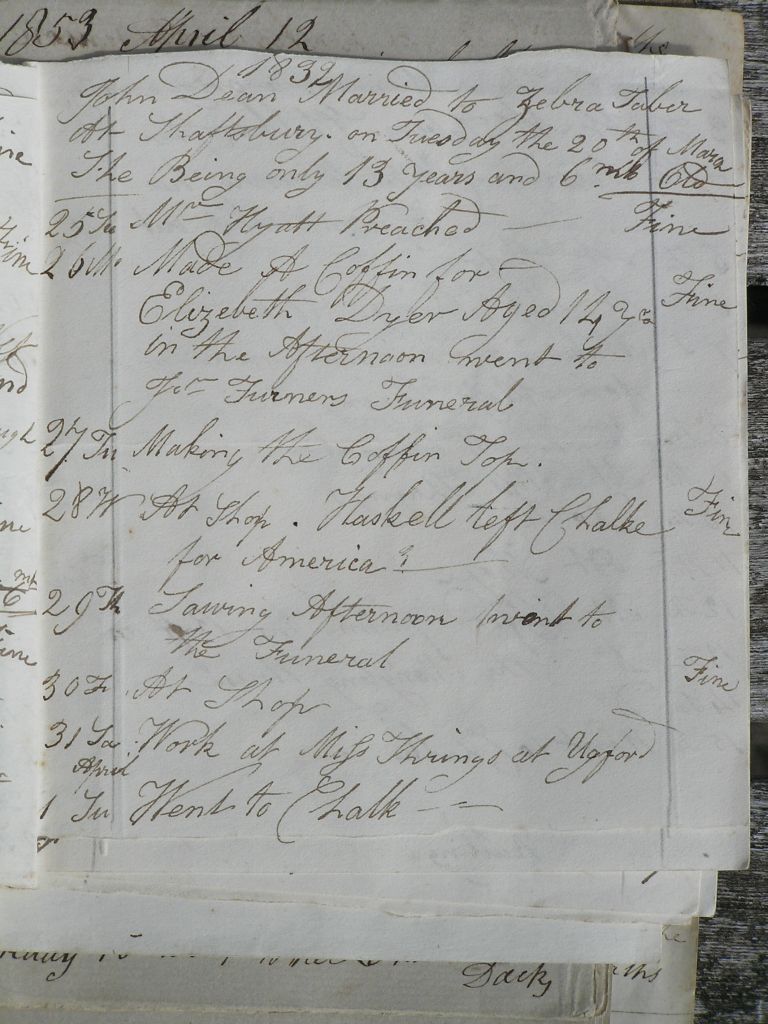 1853 April 12
1832
John Dean Married to Zebra Taber
At Shaftsbury. on Tuesday the 20th of March
She Being only 13 years and 6 mth Old
25 Su Mr Hyatt Preached — Fine
26 Mo Made A Coffin for — Fine
Elizebeth Dyer Aged 14 yrs
in the Afternoon went to
Turners Funeral
27 Tu Making the Coffin Top.
28 W At Shop. Haskell left Chalke Fine
for America
29 Th Sawing Afternoon Went to
the Funeral
30 F. At Shop Fine
31 Sa Work at Miss Thrings at Ugford
April
1 Su Went to Chalk — —
Dacks